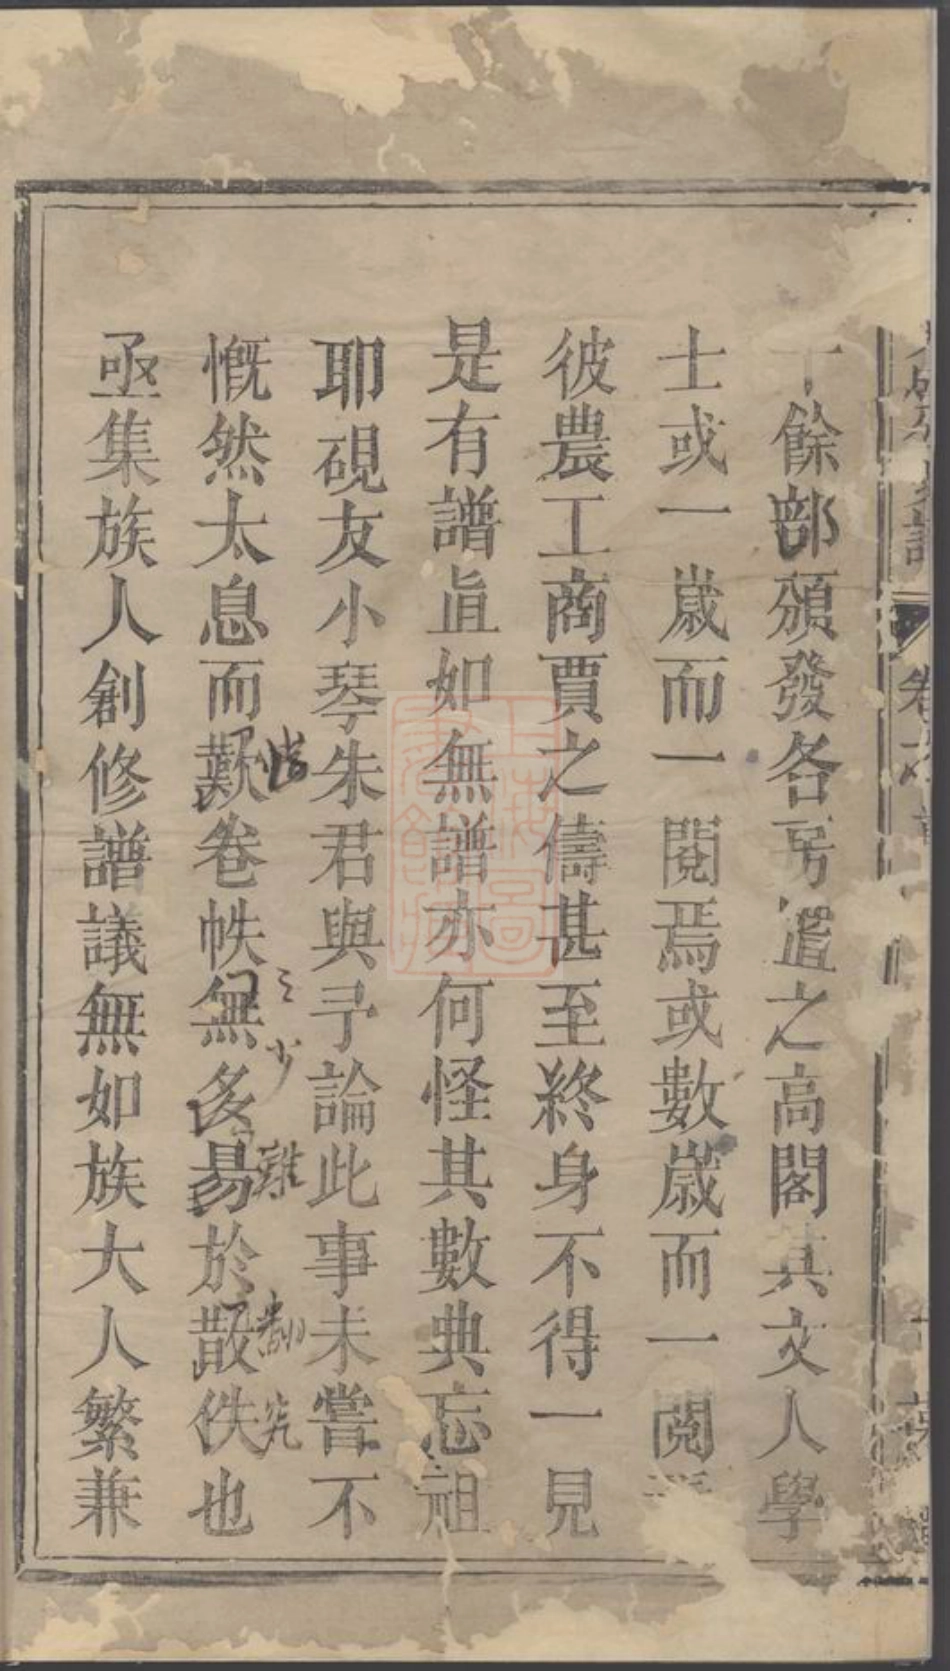 十餘部頒發各房置之高閣其文人學
士或一歲而一閱焉或數歲而一閱
彼農工商賈之儔甚至終身不得一見
是有譜直如無譜亦何怪其數典忘祖
耶硯友小琴朱君與予論此事未嘗不
慨然太息而歎卷帙無多易於散佚也
少
難
亟集族人創修譜議無如族大人繁兼